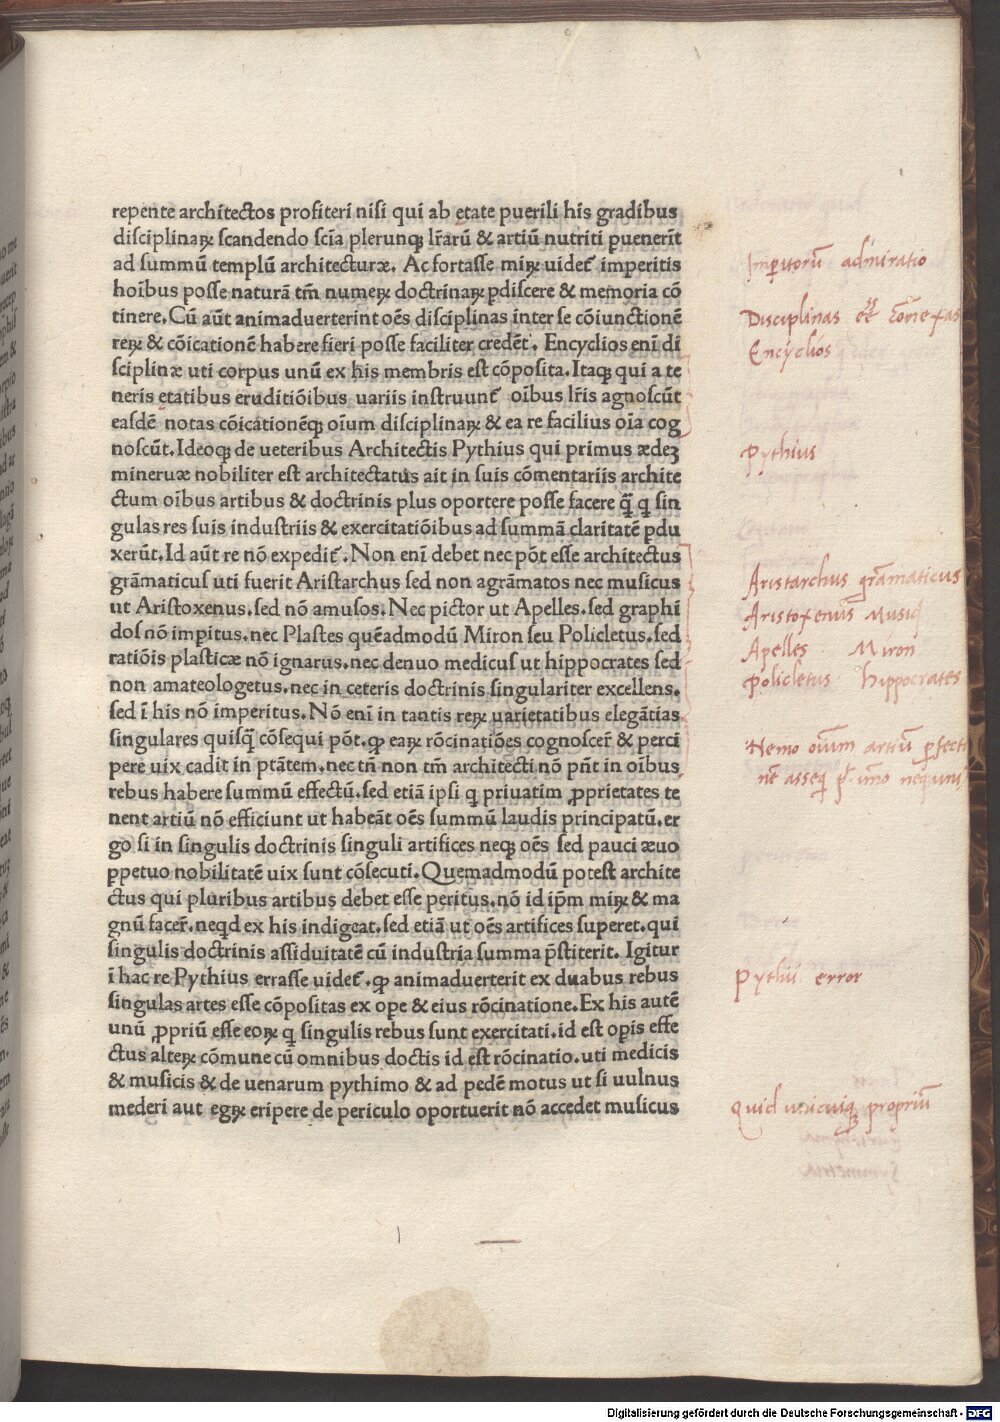 repente architectos profiteri nisi qui ab ętate puerili his gradibus
disciplinaꝝ scandendo scīa plerunqꝫ lr̄arū & artiū nutriti ꝑuenerīt
ad summū templū architecturæ. Ac fortasse miꝝ uidet᷑ imperitis
hoībus posse naturā tm̄ numeꝝ doctrinaꝝ ꝑdiscere & memoria cō
tinere. Cū aūt animaduerterint oēs disciplinas inter se cōiunctionē
reꝝ & cōicationē habere fieri posse faciliter credēt. Encyclios enī di
sciplinæ uti corpus unū ex his membris est cōposita. Itaqꝫ qui a te
neris ętatibus eruditiōibus uariis instruunt᷑ oībus lr̄is agnoscūt
easdē notas cōicationēqꝫ oīum disciplinaꝝ & ea re facilius oīa cog
noscūt. Ideoqꝫ de ueteribus Architectis Pythius qui primus ædeꝫ
mineruæ nobiliter est architectatus ait in suis cōmentariis archite
ctum oībus artibus & doctrinis plus oportere posse facere q̄ꝫ q̱ sin
gulas res suis industriis & exercitatiōibus ad summā claritatē ꝑdu
xerūt. Id aūt re nō expedit᷑. Non enī debet nec pōt esse architectus
grāmaticus uti fuerit Aristarchus sed non agrāmatos nec musicus
ut Aristoxenus. sed nō amusos. Nec pictor ut Apelles. sed graphi
dos nō imꝑitus. nec Plastes quēadmodū Miron seu Policletus. sed
ratiōis plasticæ nō ignarus. nec denuo medicus ut hippocrates sed
non amateologetus. nec in ceteris doctrinis singulariter excellens.
sed ī his nō imperitus. Nō enī in tantis reꝝ uarietatibus elegātias
singulares quisq̄ cōsequi pōt. ꝙ eaꝝ rōcinatiōes cognoscer̄ & perci
pere uix cadit in ptātem. nec tn̄ non tm̄ architecti nō pn̄t in oībus
rebus habere summū effectū. sed etiā ipsi q̱ priuatim ꝓprietates te
nent artiū nō efficiunt ut habeāt oēs summū laudis principatū. er
go si in singulis doctrinis singuli artifices neqꝫ oēs sed pauci æuo
ꝑpetuo nobilitatē uix sunt cōsecuti. Quemadmodū potest archite
ctus qui pluribus artibus debet esse peritus. nō id ip̄m miꝝ & ma
gnū facer̄. neqd ex his indigeat. sed etiā ut oēs artifices superet. qui
singulis doctrinis assiduitatē cū industria summa p̄stiterit. Igitur
ī hac re Pythius errasse uidet᷑. ꝙ animaduerterit ex duabus rebus
singulas artes esse cōpositas ex ope & eius rōcinatione. Ex his autē
unū ꝓpriū esse eoꝝ q̱ singulis rebus sunt exercitati. id est opis effe
ctus alteꝝ cōmune cū omnibus doctis id est rōcinatio. uti medicis
& musicis & de uenarum pythimo & ad pedē motus ut si uulnus
mederi aut ęgꝝ eripere de periculo oportuerit nō accedet musicus
Imꝑitorū admiratio
Disciplinas cōnexas
Encyclios
Pythius
Aristarchus grāmaticus
Aristoxenus Musiq
Apelles Miron
Policletus hippocrates
Nemo oium artiū ꝑfecti
Pythii error
Quid unicuiqꝫ propriū
Digitalisierung gefördert durch die Deutsche Forschungsgemeinschaft - DFG